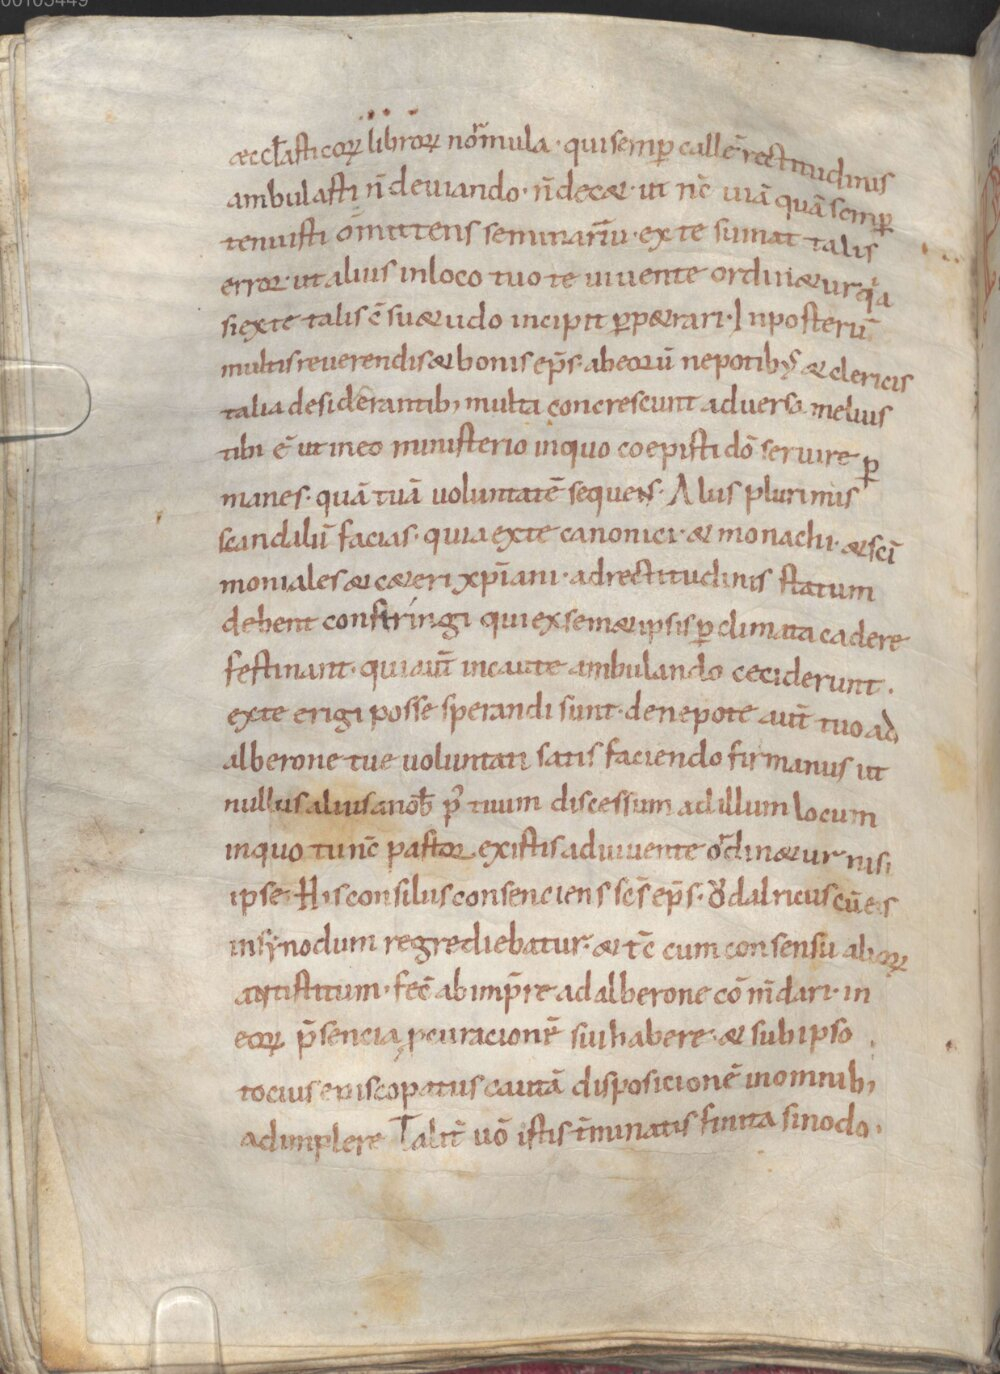 00103449
æccl̄asticoꝝ libroꝝ nor̄mula · qui semꝑ calle̅ rectitudinis
ambulasti n̄ deuiando · n̄ dec&· ut nc̄ uiā quā semꝑ
tenuisti omittens seminariū · ex te sumat talis
error · ut alius in loco tuo te uiuente ordin&ur qͣa
si ex te talis ē su&udo incipit ꝑp&rari · In posterū
multis reuerendis & bonis ep̄s · ab eorū nepotibꝰ & clericis
talia desiderantib; multa concrescunt aduersa melius
tibi ē ut in eo ministerio in quo coepisti dō seruire ꝑ
manes · quā tuā voluntatē sequens · Alus plurimis
scandalū facias · quia ex te canonici · & monachi · & sc̄i
moniales & c&eri xp̄iani · ad rectitudinis statum
debent constringi qui ex sem&ipsis ꝑ climata cadere
festinant · qui aut̄ incaute ambulando ceciderunt ·
ex te erigi posse sperandi sunt · de nepote aut̄ tuo ad
alberone tue uoluntati satis faciendo firmamus ut
nullus alius a nob̄ p̕ tuum discessum ad illum locum
in quo tu nc̄ pastor existis ad uiuente ordin&ur nisi
ipse · His consiliis consenciens sc̄s ep̄s · Ǒdalricus cū eis
in synodum regrediebatur · & tc̄ cum consensu alioꝝ
antistitum · fec̄ ab imp̄re adalberone cōm̄dari · in
eoꝝ p̄sencia ꝓcuracionē sui habere · & sub ipso
tocius episcopatus cautā disposicionē in omnib;
adimplere Talit̄ uō istis t̄minatis finita sinodo ·